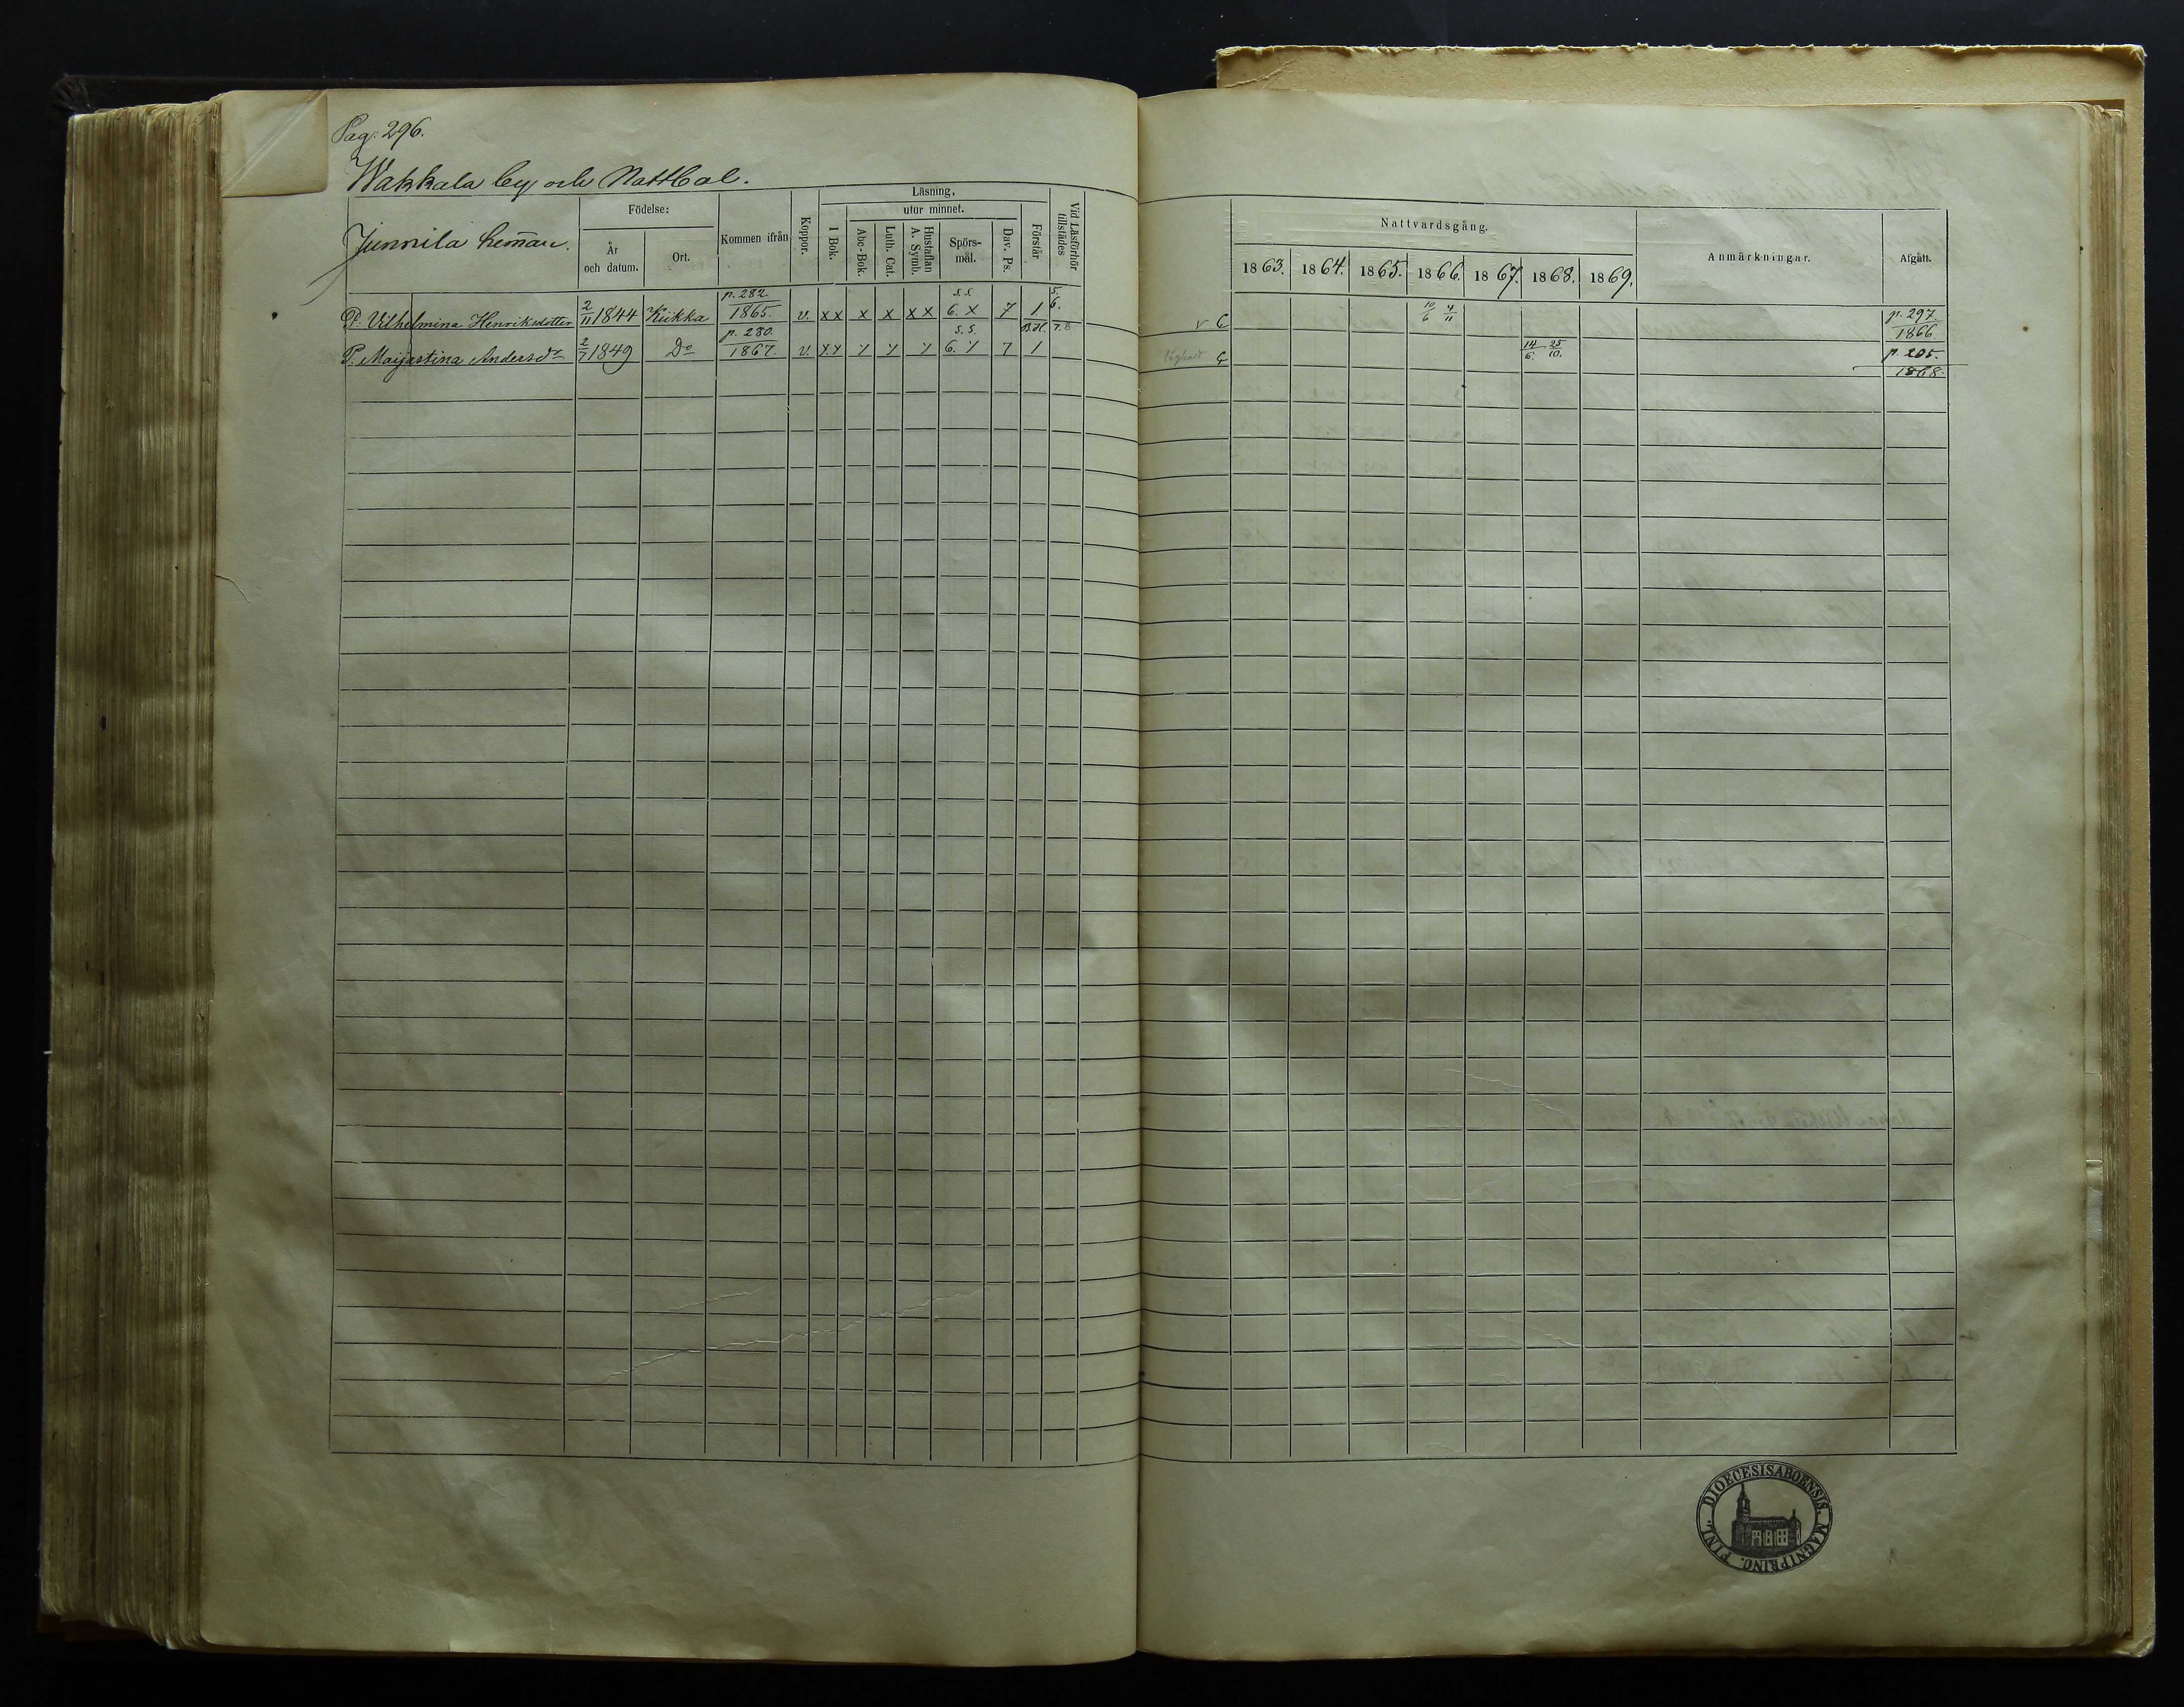 Pag. 296.
Wakkala by och Nattbol.
Junnila hemman.
Födelse:
År och datum.
Ort.
Kommen ifrån
Koppor.
Läsning,
utur minnet.
I Bok.
Abc-Bok.
Luth. Cat.
Hustaflan A. Symb.
Spörsmål.
Dav. Ps.
Förstår
Vid Läsförhör tillstädes
Nattvardsgång.
1863. 1864. 1865. 1866. 1867. 1868. 1869.
Anmärkningar.
Afgått.
P. Vilhelmina Henriksdotter 2/11 1844 Kiikka p. 282 1865. v. x x x x x x s.s. 6. x 7 1 5. 6. v C 10/6 4/11 p. 297. 1866.
P. Maijastina Andersdr 2/7 1849 Do p. 280. 1867. v. x x x x x s.s. 6. x 7 1 7. 8 C 14/6. 25/10. p. 205. 1868.
DIOECESIS ABOENSIS. MAGNI PRINC. FINL.